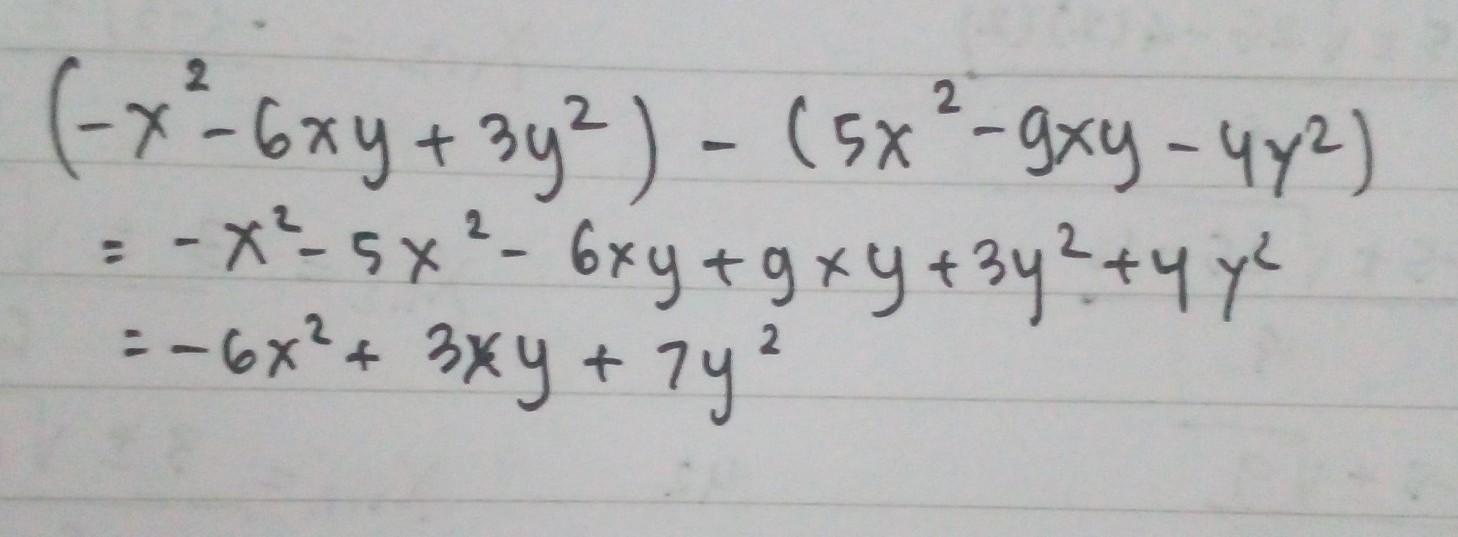 (-x² - 6xy + 3y²) - (5x² - 9xy - 4y²)
= -x² - 5x² - 6xy + 9xy + 3y² + 4y²
= -6x² + 3xy + 7y²